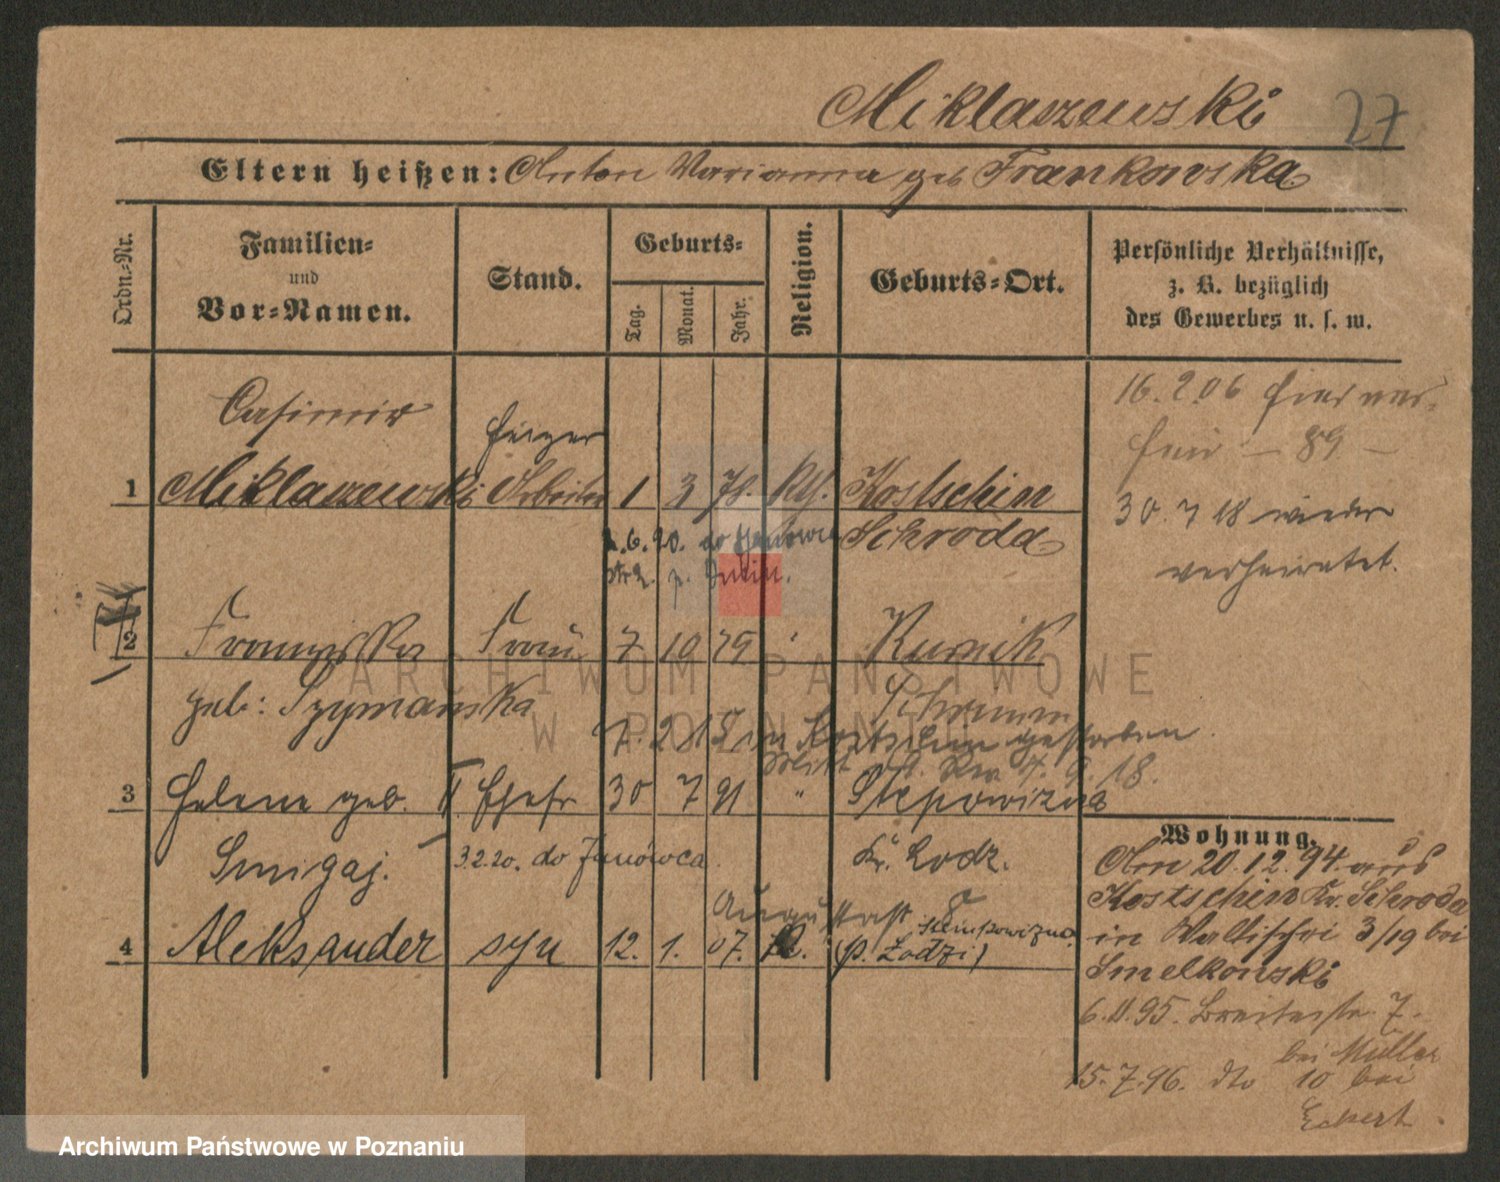 Miklaszewski 27
Eltern heißen: Anton Marianna geb Frankowska
Ordn.-Nr.
Familien-
und
Vor-Namen.
Stand.
Geburts-
Tag.
Monat.
Jahr.
Religion.
Geburts-Ort.
Persönliche Verhältnisse,
z. B. bezüglich
des Gewerbes u. s. w.
Casimir
1 Miklaszewski Arbeiter 1 3 78. kth. Kostschin
Schroda
16.2.06
89
30.7.18 wieder
verheiratet.
2 Franziska Frau 7 10 79 Kurnik
geb: Szymanska Schrimm
7.2.15 in Kostschin gestorben
3 Helene geb. II Ehefr 30 7 91 " Stempowizna
Smigaj. 3.2.20. do Janówca Kr. Lodz.
4 Aleksander syn 12. 1. 07. k. (p. Łodzi)
Wohnung.
Am 20.12.94. aus
Kostschin Kr. Schroda
in Wallischei 3/19 bei
Smelkowski
Breitestr. 7.
bei Müller
15.7.96. dto 10 bei
Eckert.
ARCHIWUM PAŃSTWOWE
W POZNANIU
Archiwum Państwowe w Poznaniu